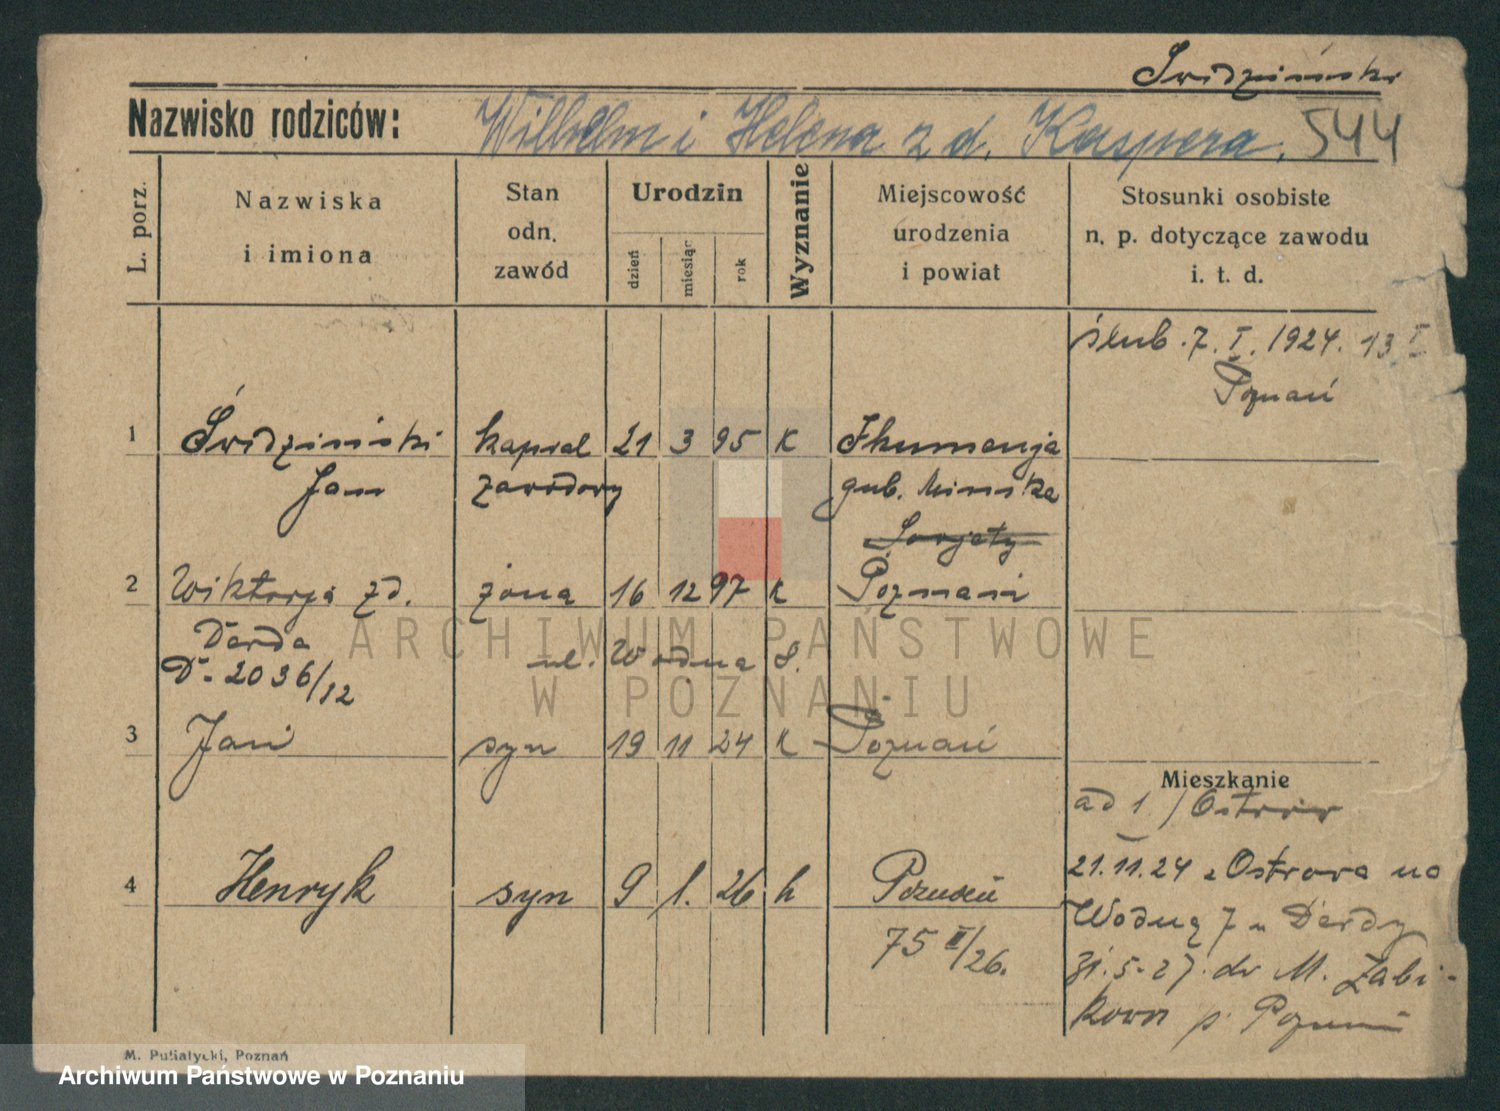 Świdziński
Nazwisko rodziców: Wilhelm i Helena z d. Kaspera. 544
L. porz.
Nazwiska
i imiona
Stan
odn.
zawód
Urodzin
dzień
miesiąc
rok
Wyznanie
Miejscowość
urodzenia
i powiat
Stosunki osobiste
n. p. dotyczące zawodu
i. t. d.
ślub. 7. I. 1924. 13 I
Poznań
1 Świdziński kapral 21 3 95 K Ihumenja
Jan zawodowy gub. Mińska
Sowjety
2 Wiktorja zd. żona 16 12 97 K Poznań
Darda ul. Wodna 8.
D. 2036/12
3 Jan syn 19 11 24 K Poznań
Mieszkanie
ad 1 / Ostrów
21.11.24 z Ostrowa na
4 Henryk syn 9 1. 26 k Poznań
Wodną 7 u Dardy
75 II/26.
31.5.27. do M. Żabi-
kowo p. Poznań
M. Putiatycki, Poznań
ARCHIWUM PAŃSTWOWE
W POZNANIU
Archiwum Państwowe w Poznaniu